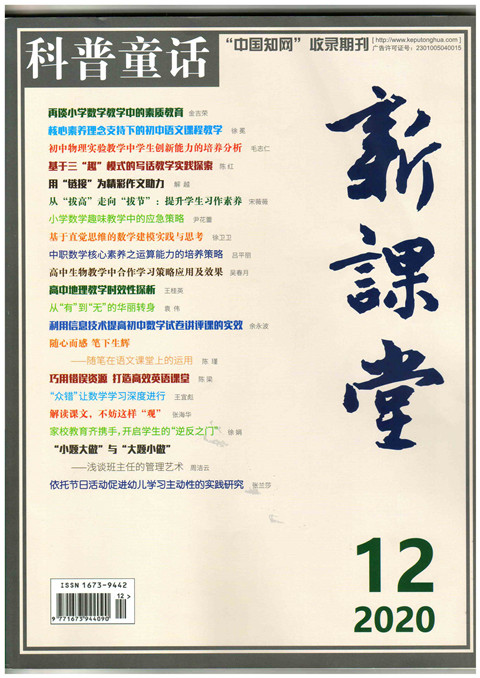 科普童话
“中国知网”收录期刊
[ http://www.keputonghua.com ]
广告许可证号：2301005040015
新课堂
再谈小学数学教学中的素质教育 金吉荣
核心素养理念支持下的初中语文课程教学 徐冕
初中物理实验教学中学生创新能力的培养分析 毛志仁
基于三“趣”模式的写话教学实践探索 陈红
用“链接”为精彩作文助力 解越
从“拔高”走向“拔节”：提升学生习作素养 宋薇薇
小学数学趣味教学中的应急策略 尹花蕾
基于直觉思维的数学建模实践与思考 徐卫卫
中职数学核心素养之运算能力的培养策略 吕平丽
高中生物教学中合作学习策略应用及效果 吴春月
高中地理教学时效性探析 王桂英
从“有”到“无”的华丽转身 袁伟
利用信息技术提高初中数学试卷讲评课的实效 余永波
随心而感 笔下生辉
——随笔在语文课堂上的运用 陈瑾
巧用错误资源 打造高效英语课堂 陈梁
“众错”让数学学习深度进行 王宜彪
解读课文，不妨这样“观” 张海华
家校教育齐携手，开启学生的“逆反之门” 徐娟
“小题大做”与“大题小做”
——浅谈班主任的管理艺术 周洁云
依托节日活动促进幼儿学习主动性的实践研究 张兰莎
12
2020
ISSN 1673-9442
12>
9771673944090